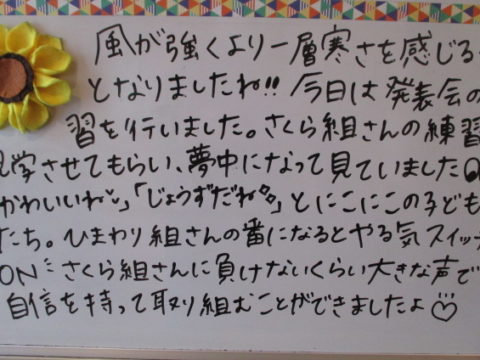 風が強くより一層寒さを感じる
となりましたね!! 今日は発表会の
習を行いました。さくら組さんの練習
見学させてもらい、夢中になって見ていました
かわいいね」「じょうずだね」とにこにこの子ども
たち。ひまわり組さんの番になるとやる気スイッチ
ON さくら組さんに負けないくらい大きな声で
自信を持って取り組むことができましたよ♡